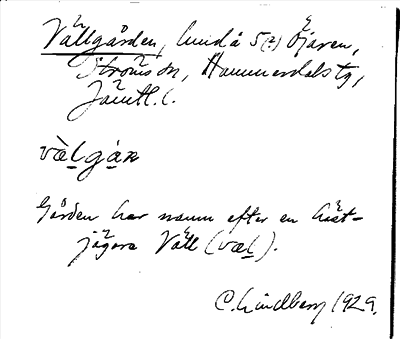 Vällgården, Lindå 5(?) Öjaren,
Ströms sn, Hammerdals tg,
Jämtl. l.
vælgán
Gården har namn efter en häst-
jägare Väll (væl).
C. Lindberg 1929.